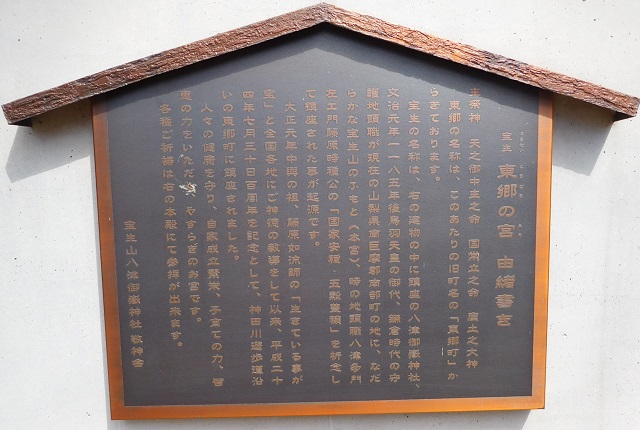 宝生 東郷の宮 由緒書き
主祭神 天之御中主之命 国常立之命 産土之大神
東郷の名称は、このあたりの旧町名の「東郷町」か
らきております。
宝生の名称は、右の建物の中に鎮座の八津御嶽神社、
文治元年一一八五年後鳥羽天皇の御代、鎌倉時代の守
護地頭職が現在の山梨県南巨摩郡南部町の地に、なだ
らかな宝生山のふもと（本宮）、時の地頭職八津多門
左エ門藤原時積公の「国家安穏・五穀豊穣」を祈念し
て鎮座された事が起源です。
大正元年中興の祖、藤原如流師の「生きている事が
宝」と全国各地にご神徳の教導をして以来、平成二十
四年七月三十日百周年を記念として、神田川遊歩道沿
いの東郷町に鎮座されました。
人々の健康を守り、自業成立繁栄、子育ての力、智
恵の力をいただく、やすらぎのお宮です。
各種ご祈祷は右の本殿にて参拝が出来ます。
宝生山八津御嶽神社 敬神会